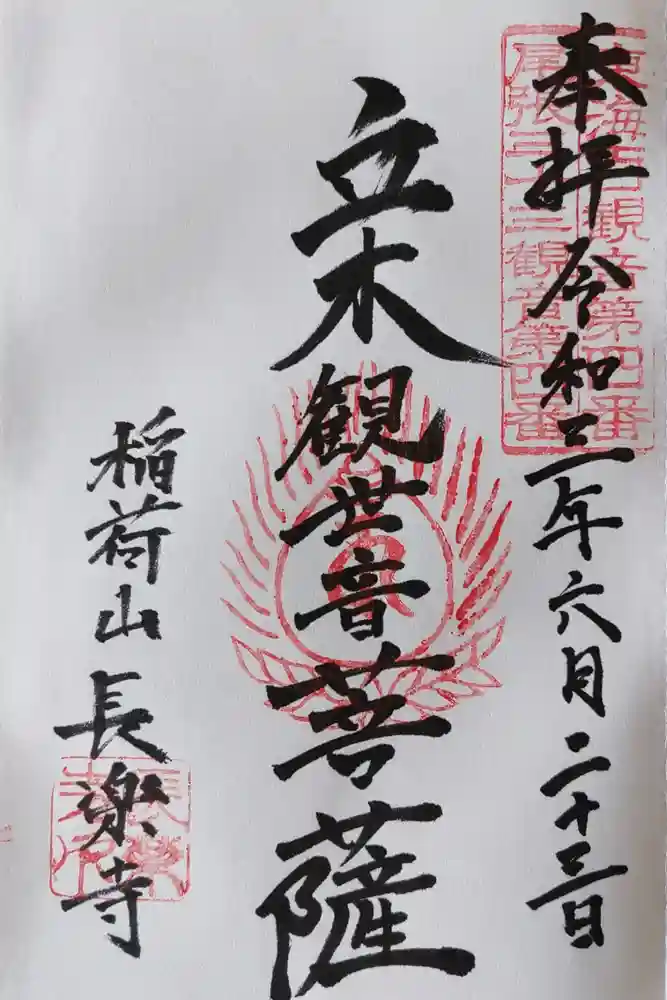 奉拝令和三年六月二十三日
東海百観音第四番
尾張三十三観音第四番
立木観世音菩薩
稲荷山長楽寺